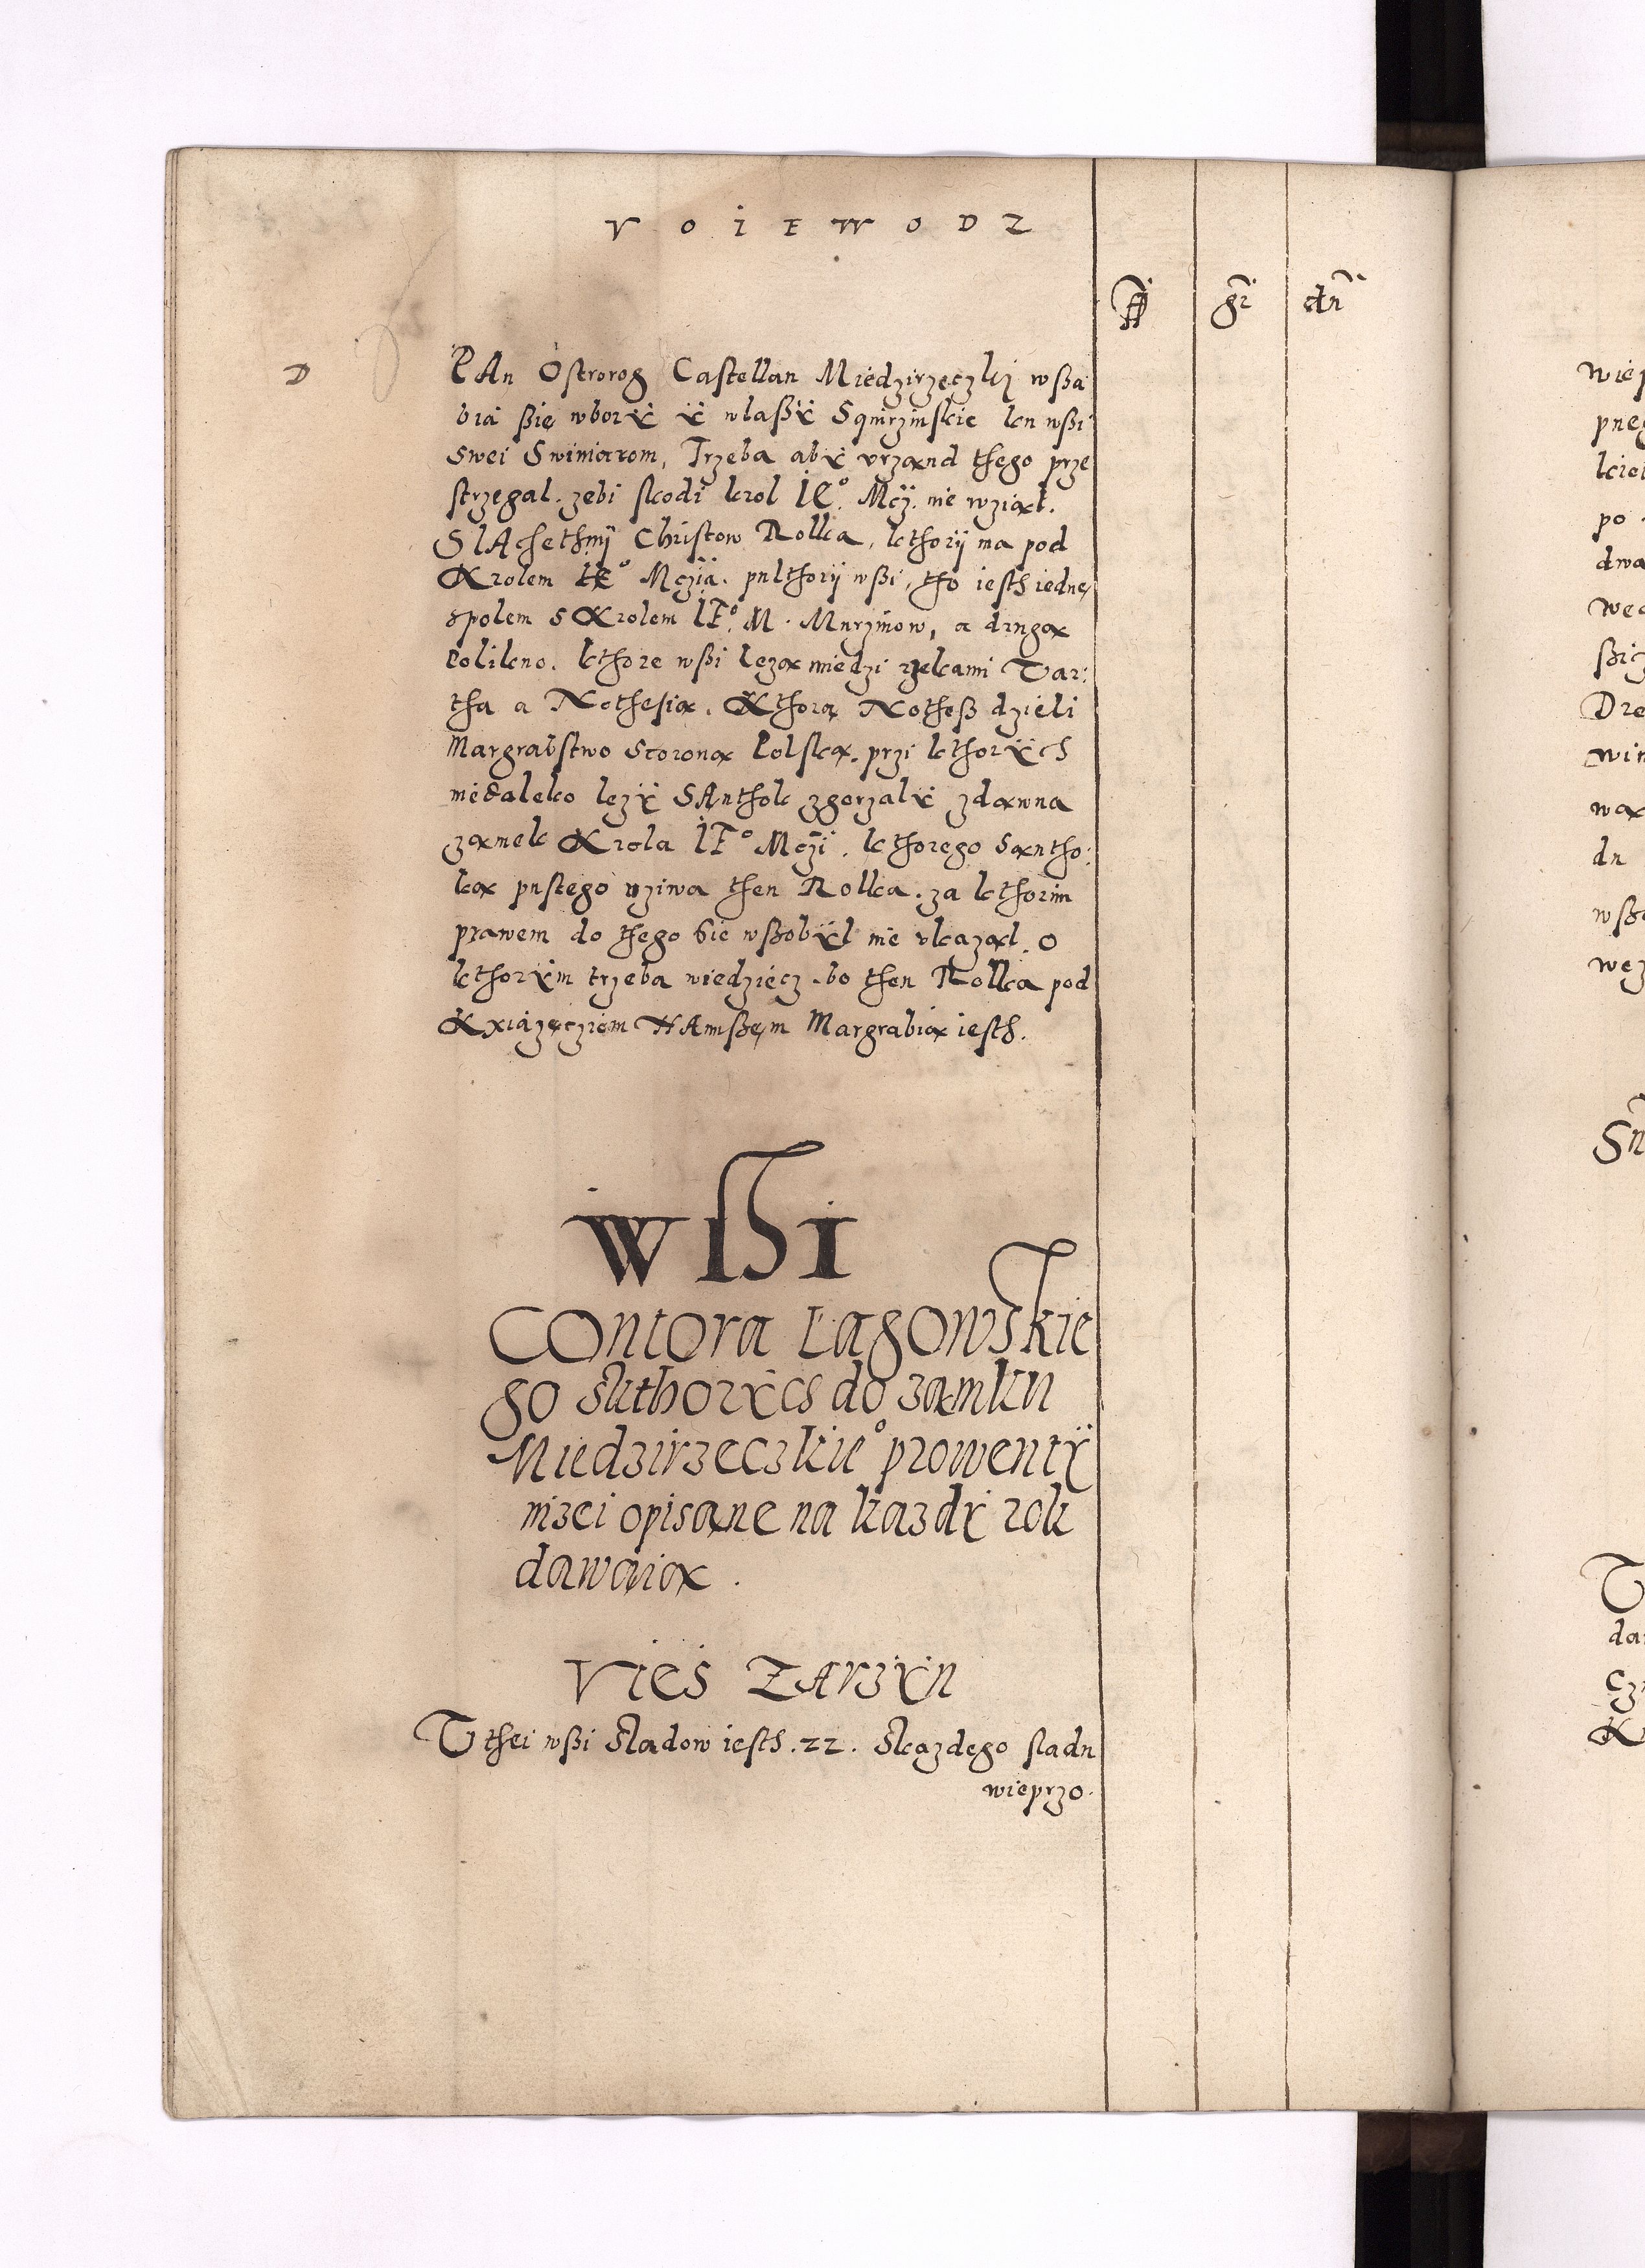 VOIEWODZ
fl gr dn
D
PAn Ostrorog Castellan Miedzirzęczkj wßa
bia ßię wborÿ ÿ wlaßÿ Sqwirzinskie ku wßi
swei Swiniarom, Trzeba abÿ vrzand thego prze
strzegal. zebi skodi krol IE° Mczj. nie wział.
SlAchethnÿ Christow Rolka, kthorÿ ma pod
Krolem IE° Mczia. pulthorÿ wßi, tho iesth iednę
spolem s Krolem IE° M. Murzinow, a druga
Polikno. kthore wßi leza miedzi rzekami Var:
tha a Nothesia. Kthora Notheß dzieli
Margrabstwo Scorona Polska. przi kthorÿch
niedaleko lezÿ SAnthok zgorzalÿ zdawna
zamek Krola IE° Mczÿ. kthorego Santho:
ka pustego uziwa then Rolka. za kthorim
prawem do thego sie wßobÿl nie vkazal. o
kthorÿm trzeba wiedziecz. bo then Rolka pod
Kxiązęcziem HAmßęm Margrabia iesth.
wßi
Contora Lagowskie
go skthorÿch do zamku
Miedzirzeczkie° prowentÿ
nizei opisane na kazdÿ rok
dawaia.
Vies ZArzÿn
V thei wßi sladow iesth. 22. Skazdego sladu
wieprzo.